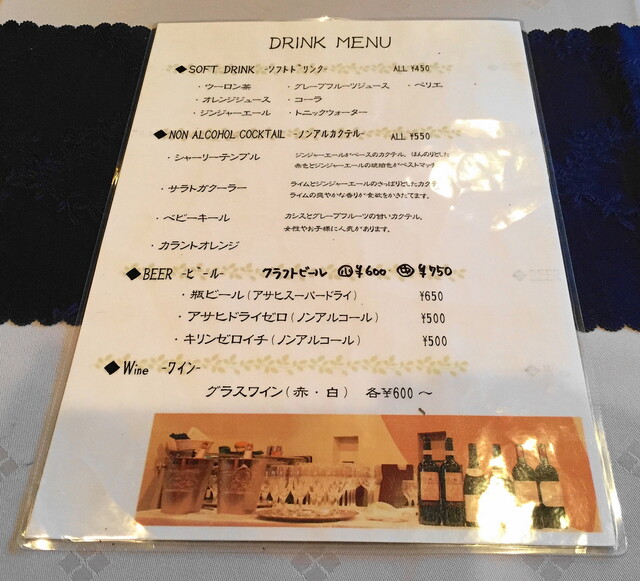 DRINK MENU
◆SOFT DRINK -ソフトドリンク- ALL ¥450
・ウーロン茶 ・グレープフルーツジュース ・ペリエ
・オレンジジュース ・コーラ
・ジンジャーエール ・トニックウォーター
◆NON ALCOHOL COCKTAIL -ノンアルカクテル- ALL ¥550
・シャーリーテンプル ジンジャーエールがベースのカクテル。ほんのりとした
赤色とジンジャーエールの琥珀色がベストマッチ
・サラトガクーラー ライムとジンジャーエールのさっぱりとしたカクテ
ライムの爽やかな香りが食欲をかきたてます。
・ベビーキール カシスとグレープフルーツの甘いカクテル。
女性やお子様に人気があります。
・カラントオレンジ
◆BEER -ビール- クラフトビール ㊙¥600 ㊥¥750
・瓶ビール(アサヒスーパードライ) ¥650
・アサヒドライゼロ(ノンアルコール) ¥500
・キリンゼロイチ(ノンアルコール) ¥500
◆Wine -ワイン-
グラスワイン(赤・白) 各¥600～